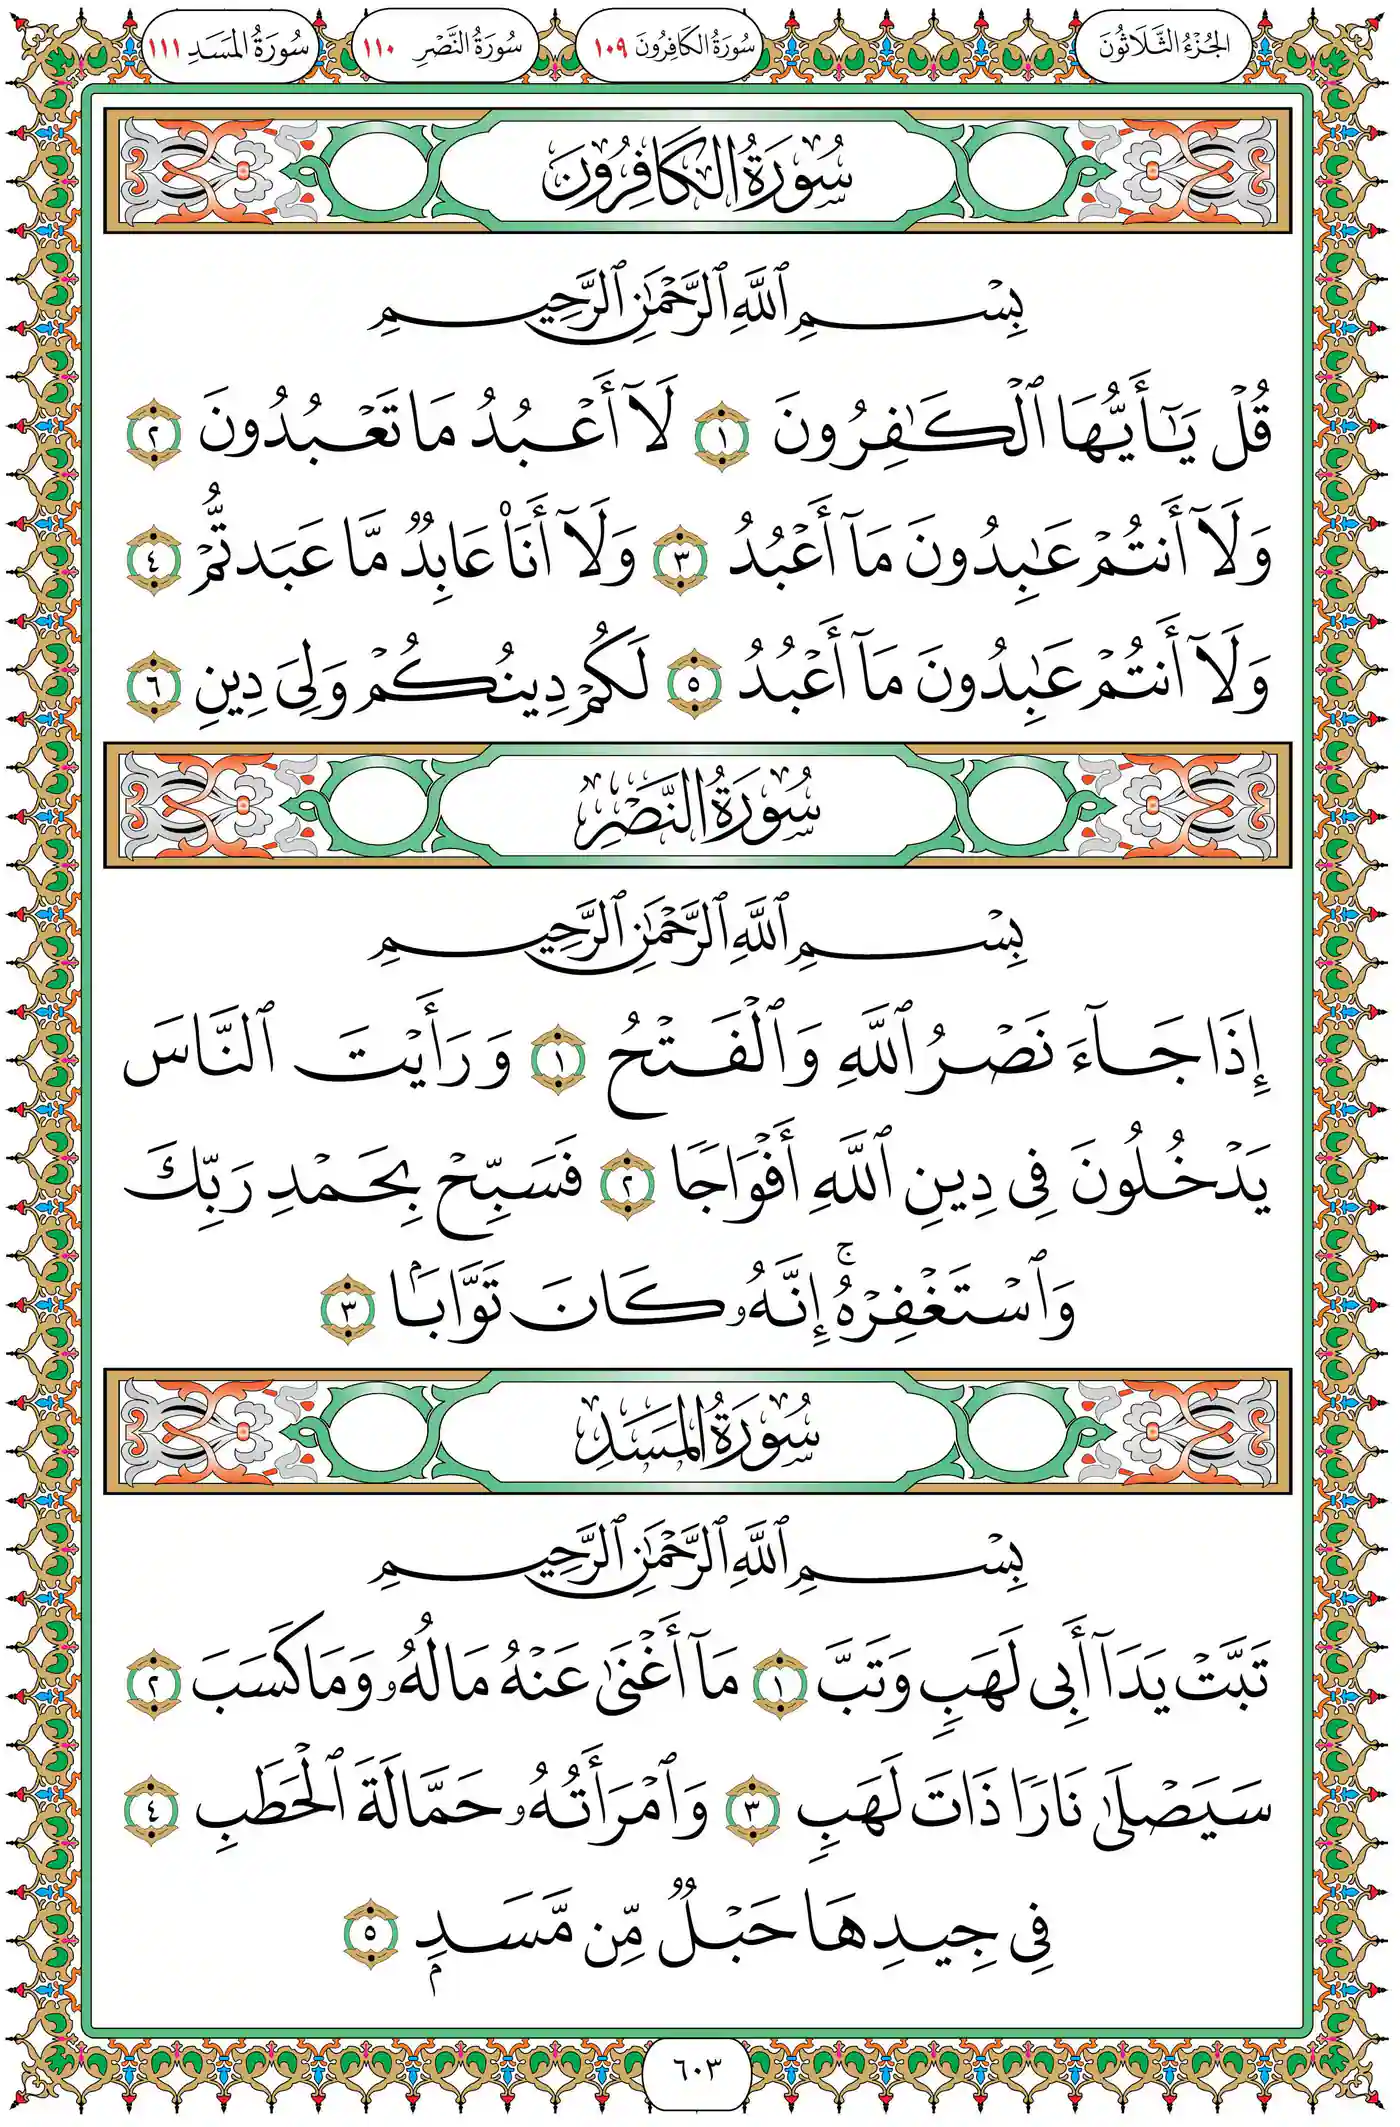 الجُزْءُ الثَّلَاثُونَ سُورَةُ الكَافِرُونَ ١٠٩ سُورَةُ النَّصْرِ ١١٠ سُورَةُ المَسَدِ ١١١
سُورَةُ الكَافِرُونَ
بِسْمِ ٱللَّهِ ٱلرَّحْمَٰنِ ٱلرَّحِيمِ
قُلْ يَٰٓأَيُّهَا ٱلْكَٰفِرُونَ ١ لَآ أَعْبُدُ مَا تَعْبُدُونَ ٢
وَلَآ أَنتُمْ عَٰبِدُونَ مَآ أَعْبُدُ ٣ وَلَآ أَنَا۠ عَابِدٌ مَّا عَبَدتُّمْ ٤
وَلَآ أَنتُمْ عَٰبِدُونَ مَآ أَعْبُدُ ٥ لَكُمْ دِينُكُمْ وَلِىَ دِينِ ٦
سُورَةُ النَّصْرِ
بِسْمِ ٱللَّهِ ٱلرَّحْمَٰنِ ٱلرَّحِيمِ
إِذَا جَآءَ نَصْرُ ٱللَّهِ وَٱلْفَتْحُ ١ وَرَأَيْتَ ٱلنَّاسَ
يَدْخُلُونَ فِى دِينِ ٱللَّهِ أَفْوَاجًا ٢ فَسَبِّحْ بِحَمْدِ رَبِّكَ
وَٱسْتَغْفِرْهُ ۚ إِنَّهُۥ كَانَ تَوَّابًۢا ٣
سُورَةُ المَسَدِ
بِسْمِ ٱللَّهِ ٱلرَّحْمَٰنِ ٱلرَّحِيمِ
تَبَّتْ يَدَآ أَبِى لَهَبٍ وَتَبَّ ١ مَآ أَغْنَىٰ عَنْهُ مَالُهُۥ وَمَا كَسَبَ ٢
سَيَصْلَىٰ نَارًا ذَاتَ لَهَبٍ ٣ وَٱمْرَأَتُهُۥ حَمَّالَةَ ٱلْحَطَبِ ٤
فِى جِيدِهَا حَبْلٌ مِّن مَّسَدٍۭ ٥
٦٠٣